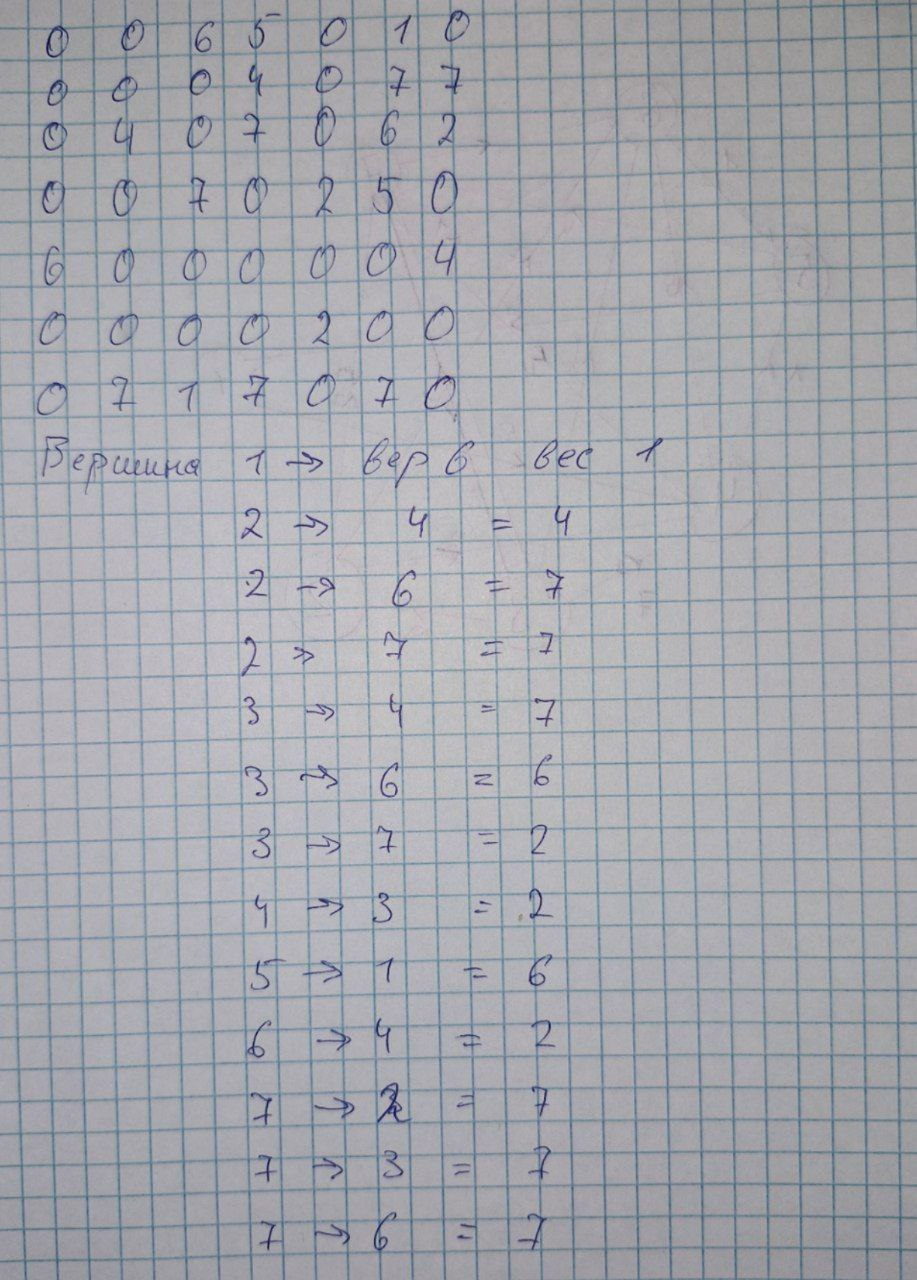 0 0 6 5 0 1 0
0 0 0 4 0 7 7
0 4 0 7 0 6 2
0 0 7 0 2 5 0
6 0 0 0 0 0 4
0 0 0 0 2 0 0
0 7 1 7 0 7 0
Вершина 1 → вер 6 вес 1
2 → 4 = 4
2 → 6 = 7
2 → 7 = 7
3 → 4 = 7
3 → 6 = 6
3 → 7 = 2
4 → 3 = 2
5 → 1 = 6
6 → 4 = 2
7 → 2 = 7
7 → 3 = 7
7 → 6 = 7